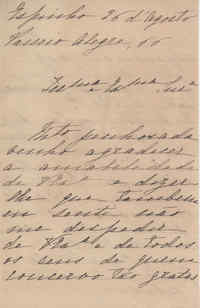 Espinho 26 d'Agosto
Passeio Alegre, 66
Muito penhorada
venho agradecer
a amabilidade
de V.ª Ex.ª e dizer
lhe que tambem
eu senti não
me despedir
de V.ª Ex.ª e de todos
os seus de quem
conservo tão gratas